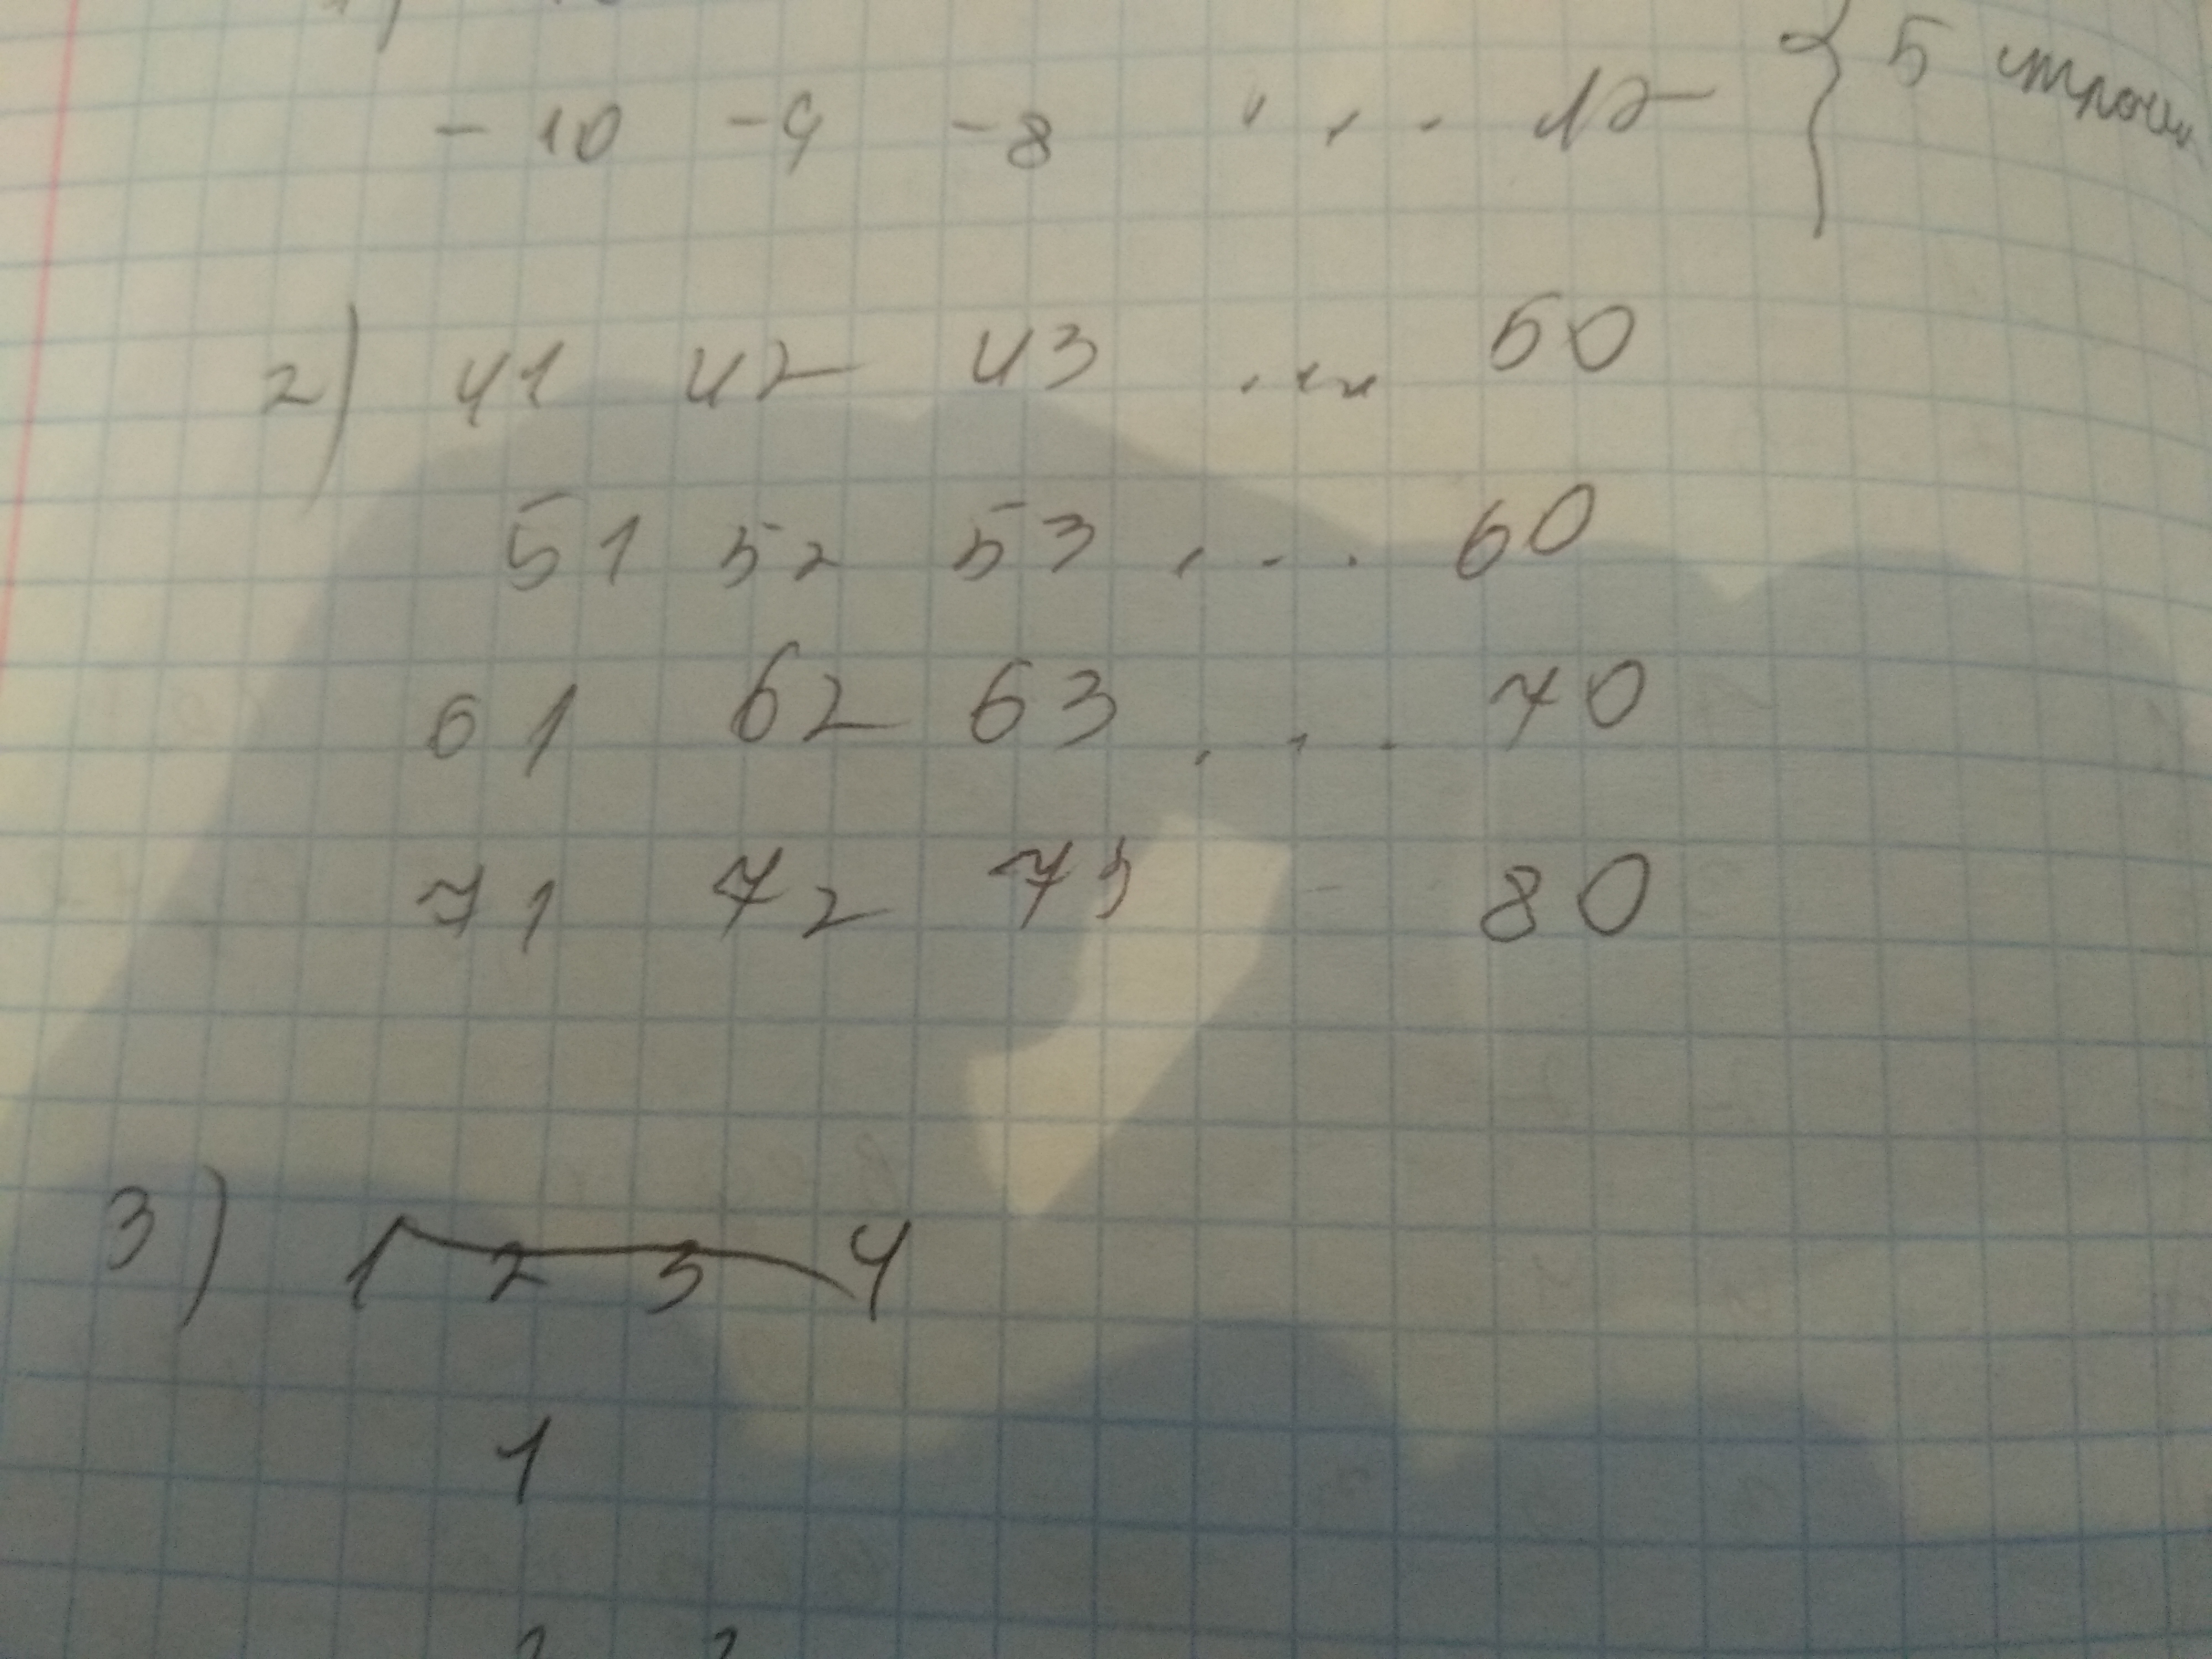 -10 -9 -8 ... 12 } 5 строк
2) 41 42 43 ... 50
51 52 53 ... 60
61 62 63 ... 70
71 72 73 - 80
3) 1 2 3 4
1
2 2